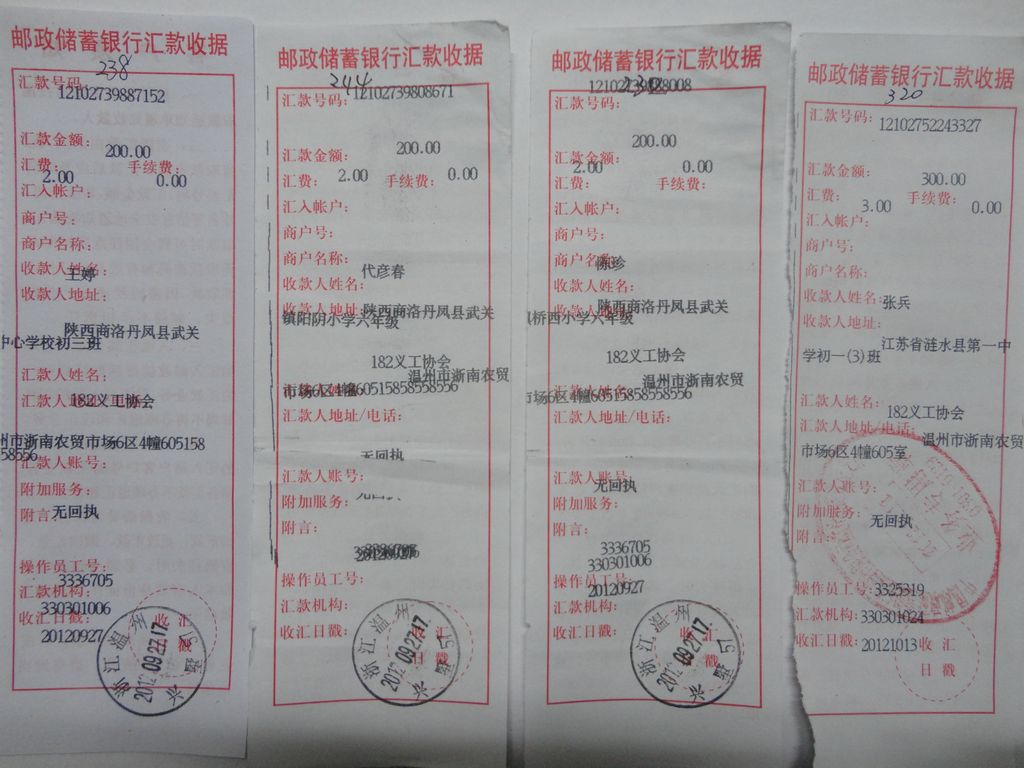 邮政储蓄银行汇款收据
238
汇款号码:
12102739887152
汇款金额:
200.00
汇费:
手续费:
2.00
0.00
汇入帐户:
商户号:
商户名称:
收款人姓名:
王婷
收款人地址:
陕西商洛丹凤县武关
中心学校初三班
汇款人姓名:
182义工协会
州市浙南农贸市场6区4幢605158
58556
汇款人账号:
附加服务:
附言:
无回执
操作员工号:
3336705
汇款机构:
330301006
收汇日戳:
20120927
浙江温州
2012.09.27.17
邮政储蓄银行汇款收据
244
汇款号码:
12102739808671
汇款金额:
200.00
汇费:
2.00
手续费:
0.00
汇入帐户:
商户号:
商户名称:
代彦春
收款人姓名:
收款人地址:
陕西商洛丹凤县武关
镇阳阴小学六年级
182义工协会
温州市浙南农贸
市场6区4幢60515858558556
汇款人地址/电话:
无回执
汇款人账号:
附加服务:
附言:
操作员工号:
汇款机构:
收汇日戳:
浙江温州
2012.09.27.17
邮政储蓄银行汇款收据
汇款号码:
汇款金额:
200.00
汇费:
2.00
手续费:
0.00
汇入帐户:
商户号:
商户名称:
陈珍
收款人姓名:
收款人地址:
陕西商洛丹凤县武关
桥西小学六年级
182义工协会
汇款人姓名:
温州市浙南农贸
市场6区4幢60515858558556
汇款人地址/电话:
汇款人账号:
无回执
附加服务:
附言:
3336705
330301006
操作员工号:
20120927
汇款机构:
收汇日戳:
浙江温州
2012.09.27.17
邮政储蓄银行汇款收据
320
汇款号码:
12102752243327
汇款金额:
300.00
汇费:
3.00
手续费:
0.00
汇入帐户:
商户号:
商户名称:
收款人姓名:
张兵
收款人地址:
江苏省涟水县第一中
学初一(3)班
汇款人姓名:
182义工协会
汇款人地址/电话:
温州市浙南农贸
市场6区4幢605室
汇款人账号:
附加服务:
无回执
附言:
操作员工号:
3325319
汇款机构:
330301024
收汇日戳:
20121013
收汇
日戳